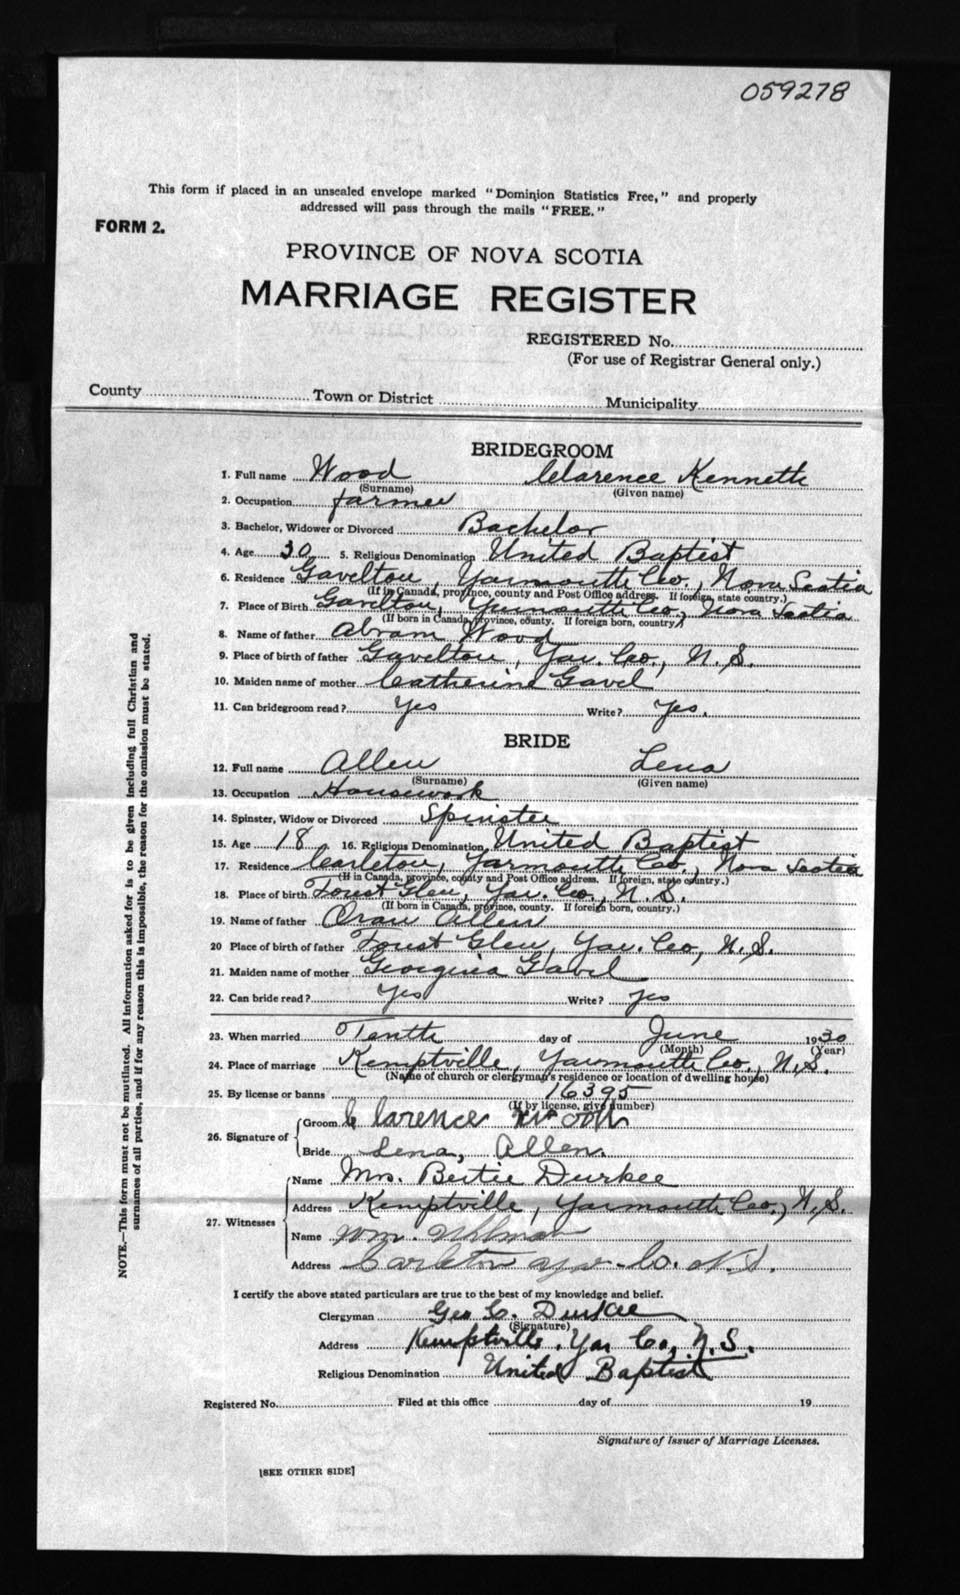 059278
This form if placed in an unsealed envelope marked "Dominion Statistics Free," and properly
addressed will pass through the mails "FREE."
FORM 2.
PROVINCE OF NOVA SCOTIA
MARRIAGE REGISTER
REGISTERED No.
(For use of Registrar General only.)
County Town or District Municipality
BRIDEGROOM
1. Full name Wood Clarence Kenneth
(Surname) (Given name)
2. Occupation farmer
3. Bachelor, Widower or Divorced Bachelor
4. Age 30 5. Religious Denomination United Baptist
6. Residence Gavelton, Yarmouth Co., Nova Scotia
(If in Canada, province, county and Post Office address. If foreign, state country.)
7. Place of Birth Gavelton, Yarmouth Co., Nova Scotia
(If born in Canada, province, county. If foreign born, country.)
8. Name of father Abram Wood
9. Place of birth of father Gavelton, Yar. Co., N.S.
10. Maiden name of mother Catherine Gavel
11. Can bridegroom read? Yes Write? Yes.
BRIDE
12. Full name Allen Lena
(Surname) (Given name)
13. Occupation Housework
14. Spinster, Widow or Divorced Spinster
15. Age 18 16. Religious Denomination United Baptist
17. Residence Carleton, Yarmouth Co., Nova Scotia
(If in Canada, province, county and Post Office address. If foreign, state country.)
18. Place of birth Forest Glen, Yar. Co., N.S.
(If born in Canada, province, county. If foreign born, country.)
19. Name of father Oran Allen
20 Place of birth of father Forest Glen, Yar. Co., N.S.
21. Maiden name of mother Georgina Gavel
22. Can bride read? Yes Write? yes
23. When married Tenth day of June 1930
(Month) (Year)
24. Place of marriage Kemptville, Yarmouth Co., N.S.
(Name of church or clergyman's residence or location of dwelling house)
25. By license or banns 16395
(If by license, give number)
26. Signature of Groom Clarence Wood
Bride Lena, Allen.
27. Witnesses Name Mrs. Bertie Durkee
Address Kemptville, Yarmouth Co., N.S.
Name Wm. Ullman
Address Carleton Yar. Co. N.S.
I certify the above stated particulars are true to the best of my knowledge and belief.
Clergyman Geo C. Durkee
(Signature)
Address Kemptville, Yar Co, N.S.
Religious Denomination United Baptist
Registered No. Filed at this office day of 19
Signature of Issuer of Marriage Licenses.
[SEE OTHER SIDE]
NOTE.—This form must not be mutilated. All information asked for is to be given including full Christian and
surnames of all parties, and if for any reason this is impossible, the reason for the omission must be stated.